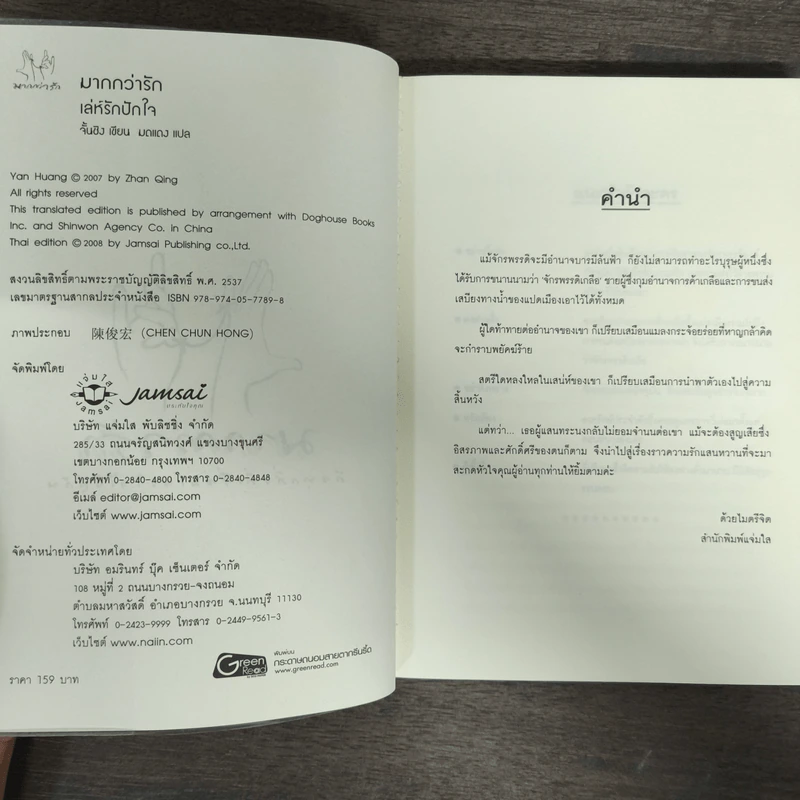 มากกว่ารัก
มากกว่ารัก
เล่ห์รักปักใจ
จั้นชิง เขียน มดแดง แปล
Yan Huang © 2007 by Zhan Qing
All rights reserved
This translated edition is published by arrangement with Doghouse Books
Inc. and Shinwon Agency Co. in China
Thai edition © 2008 by Jamsai Publishing co.,Ltd.
สงวนลิขสิทธิ์ตามพระราชบัญญัติลิขสิทธิ์ พ.ศ. 2537
เลขมาตรฐานสากลประจำหนังสือ ISBN 978-974-05-7789-8
ภาพประกอบ 陳俊宏 (CHEN CHUN HONG)
จัดพิมพ์โดย
แจ่มใส
Jamsai
Jamsai
บริษัท แจ่มใส พับลิชชิ่ง จำกัด
285/33 ถนนจรัญสนิทวงศ์ แขวงบางขุนศรี
เขตบางกอกน้อย กรุงเทพฯ 10700
โทรศัพท์ 0-2840-4800 โทรสาร 0-2840-4848
อีเมล์ editor@jamsai.com
เว็บไซต์ www.jamsai.com
จัดจำหน่ายทั่วประเทศโดย
บริษัท อมรินทร์ บุ๊ค เซ็นเตอร์ จำกัด
108 หมู่ที่ 2 ถนนบางกรวย-จงถนอม
ตำบลมหาสวัสดิ์ อำเภอบางกรวย จ.นนทบุรี 11130
โทรศัพท์ 0-2423-9999 โทรสาร 0-2449-9561-3
เว็บไซต์ www.naiin.com
Green Read
พิมพ์บน
กระดาษถนอมสายตากรีนรี้ด
www.greenread.com
ราคา 159 บาท
คำนำ
แม้จักรพรรดิจะมีอำนาจบารมีล้นฟ้า ก็ยังไม่สามารถทำอะไรบุรุษผู้หนึ่งซึ่ง
ได้รับการขนานนามว่า 'จักรพรรดิเกลือ' ชายผู้ซึ่งกุมอำนาจการค้าเกลือและการขนส่ง
เสบียงทางน้ำของแปดเมืองเอาไว้ได้ทั้งหมด
ผู้ใดท้าทายต่ออำนาจของเขา ก็เปรียบเสมือนแมลงกระจ้อยร่อยที่หาญกล้าคิด
จะกำราบพยัคฆ์ร้าย
สตรีใดหลงใหลในเสน่ห์ของเขา ก็เปรียบเสมือนการนำพาตัวเองไปสู่ความ
สิ้นหวัง
แต่ทว่า... เธอผู้แสนทระนงกลับไม่ยอมจำนนต่อเขา แม้จะต้องสูญเสียซึ่ง
อิสรภาพและศักดิ์ศรีของตนก็ตาม จึงนำไปสู่เรื่องราวความรักแสนหวานที่จะมา
สะกดหัวใจคุณผู้อ่านทุกท่านให้ยิ้มตามค่ะ
ด้วยไมตรีจิต
สำนักพิมพ์แจ่มใส